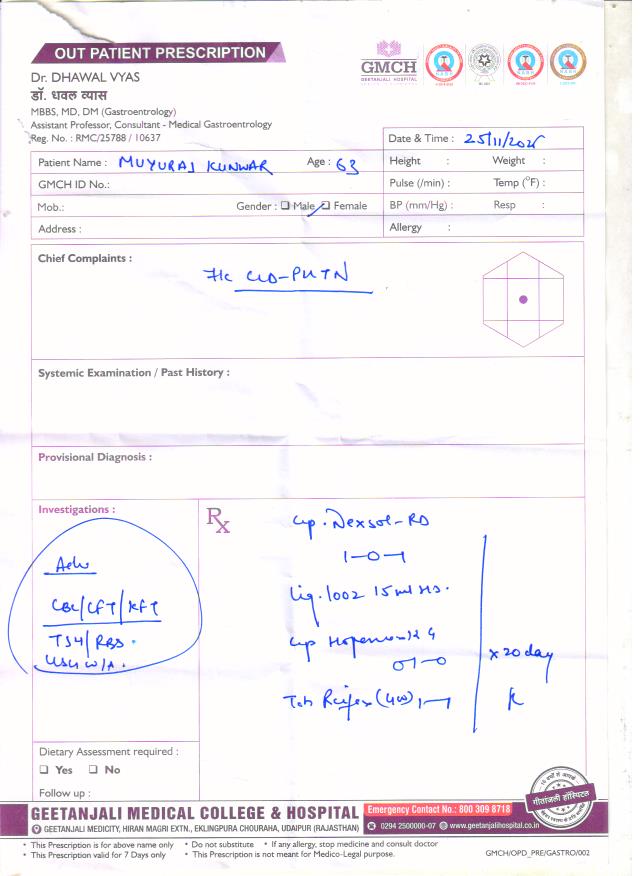 OUT PATIENT PRESCRIPTION
GMCH
GEETANJALI HOSPITAL
Dr. DHAWAL VYAS
डॉ. धवल व्यास
MBBS, MD, DM (Gastroenterology)
Assistant Professor, Consultant - Medical Gastroentology
Reg. No. : RMC/25788 / 10637
Date & Time : 25/11/2025
Patient Name : MUYURAJ KUNWAR Age : 63
Height : Weight :
GMCH ID No.:
Pulse (/min) : Temp (°F) :
Mob.: Gender : ☐ Male ☐ Female
BP (mm/Hg) : Resp :
Address :
Allergy :
Chief Complaints :
CLD-PHTN
Systemic Examination / Past History :
Provisional Diagnosis :
Investigations :
Rx
Adv
CBC/LFT/KFT
TSH/RBS
USG W/A.
Cap. Nexsol-RD
1-0-1
Liq. 1002 15ml HS.
Cap
0-1-0
Tab (400) 1-1
x 20 day
Dietary Assessment required :
☐ Yes ☐ No
Follow up :
गीतांजली हॉस्पिटल
GEETANJALI MEDICAL COLLEGE & HOSPITAL
Emergency Contact No.: 800 309 8718
GEETANJALI MEDICITY, HIRAN MAGRI EXTN., EKLINGPURA CHOURAHA, UDAIPUR (RAJASTHAN)
0294 2500000-07 www.geetanjalihospital.co.in
* This Prescription is for above name only * Do not substitute * If any allergy, stop medicine and consult doctor
* This Prescription valid for 7 Days only * This Prescription is not meant for Medico-Legal purpose.
GMCH/OPD_PRE/GASTRO/002